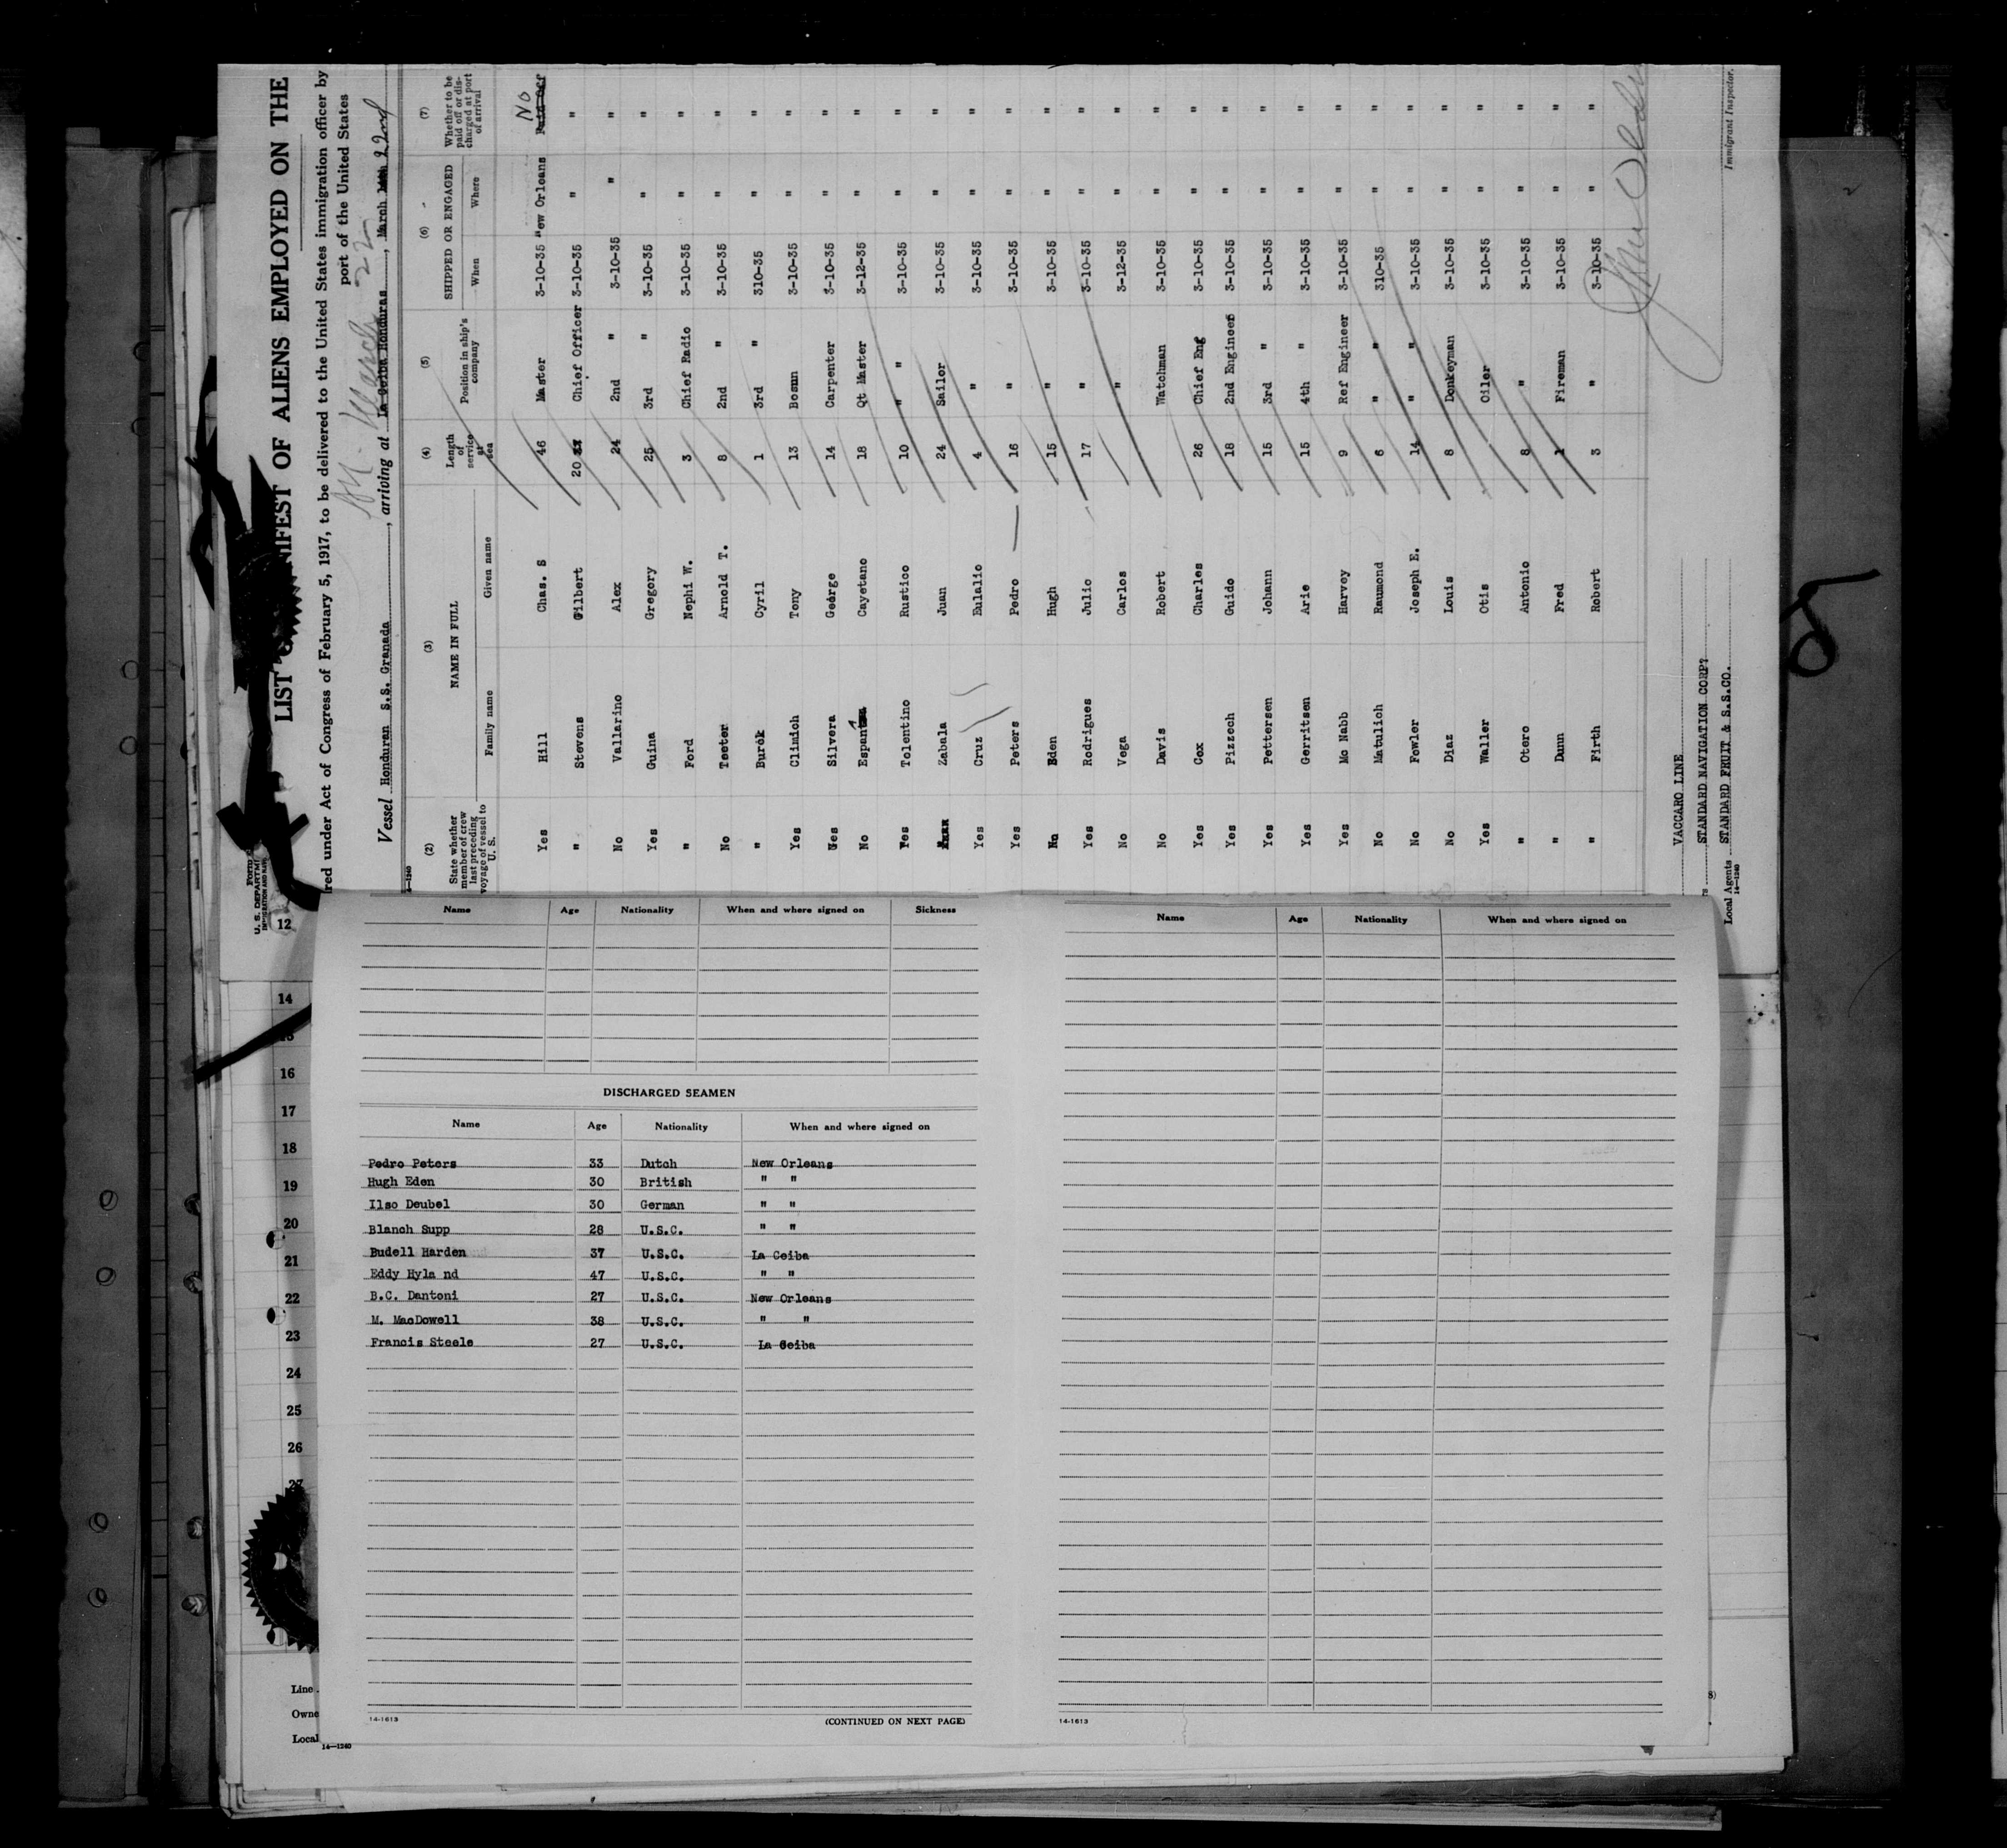 LIST OR MANIFEST OF ALIENS EMPLOYED ON THE
red under Act of Congress of February 5, 1917, to be delivered to the United States immigration officer by
port of the United States
Vessel Honduran S.S. Granada, arriving at La Ceiba Honduras, March 22nd
(2) (3) (4) (5) (6) (7)
State whether member of crew last preceding voyage of vessel to U. S. NAME IN FULL Family name Given name Length of service at sea Position in ship's company SHIPPED OR ENGAGED When Where Whether to be paid off or discharged at port of arrival
Yes Hill Chas. S 46 Master 3-10-35 "ew Orleans No
" Stevens Gilbert 20 Chief Officer 3-10-35 " "
No Vallarino Alex 24 2nd " 3-10-35 " "
Yes Guina Gregory 25 3rd " 3-10-35 " "
" Ford Nephi W. 3 Chief Radio 3-10-35 " "
No Teeter Arnold T. 8 2nd " 3-10-35 " "
" Burek Cyril 1 3rd " 310-35 " "
Yes Climich Tony 13 Bosun 3-10-35 " "
Yes Silvera George 14 Carpenter 3-10-35 " "
No Cayetano 18 Qt Master 3-12-35 " "
Yes Tolentino Rustico 10 " " 3-10-35 " "
Zabala Juan 24 Sailor 3-10-35 " "
Yes Cruz Eulalio 4 " 3-10-35 " "
Yes Peters Pedro 16 " 3-10-35 " "
No Eden Hugh 15 " 3-10-35 " "
Yes Rodrigues Julio 17 " 3-10-35 " "
No Vega Carlos " 3-12-35 " "
No Davis Robert Watchman 3-10-35 " "
Yes Cox Charles 26 Chief Eng 3-10-35 " "
Yes Pizzech Guido 18 2nd Engineer 3-10-35 " "
Yes Pettersen Johann 15 3rd " 3-10-35 " "
Yes Gerritsen Arie 15 4th " 3-10-35 " "
Yes Mc Nabb Harvey 9 Ref Engineer 3-10-35 " "
No Matulich Raumond 6 " " 310-35 " "
No Fowler Joseph E. 14 " " 3-10-35 " "
No Diaz Louis 8 Donkeyman 3-10-35 " "
Yes Waller Otis Oiler 3-10-35 " "
" Otero Antonio 8 " 3-10-35 " "
" Dunn Fred 1 Fireman 3-10-35 " "
" Firth Robert 3 " 3-10-35 " "
Immigrant Inspector.
VACCARO LINE
STANDARD NAVIGATION CORP?
Local Agents STANDARD FRUIT & S.S.CO.
14—1240
Name Age Nationality When and where signed on Sickness
DISCHARGED SEAMEN
Name Age Nationality When and where signed on
Pedro Peters 33 Dutch New Orleans
Hugh Eden 30 British " "
Ilso Deubel 30 German " "
Blanch Supp 28 U.S.C. " "
Budell Harden 37 U.S.C. La Ceiba
Eddy Hyla nd 47 U.S.C. " "
B.C. Dantoni 27 U.S.C. New Orleans
M. MacDowell 38 U.S.C. " "
Francis Steele 27 U.S.C. La Ceiba
14-1613
(CONTINUED ON NEXT PAGE)
Name Age Nationality When and where signed on
14-1613
12
14
16
17
18
19
20
21
22
23
24
25
26
27
Line
Owne
Local
14—1240